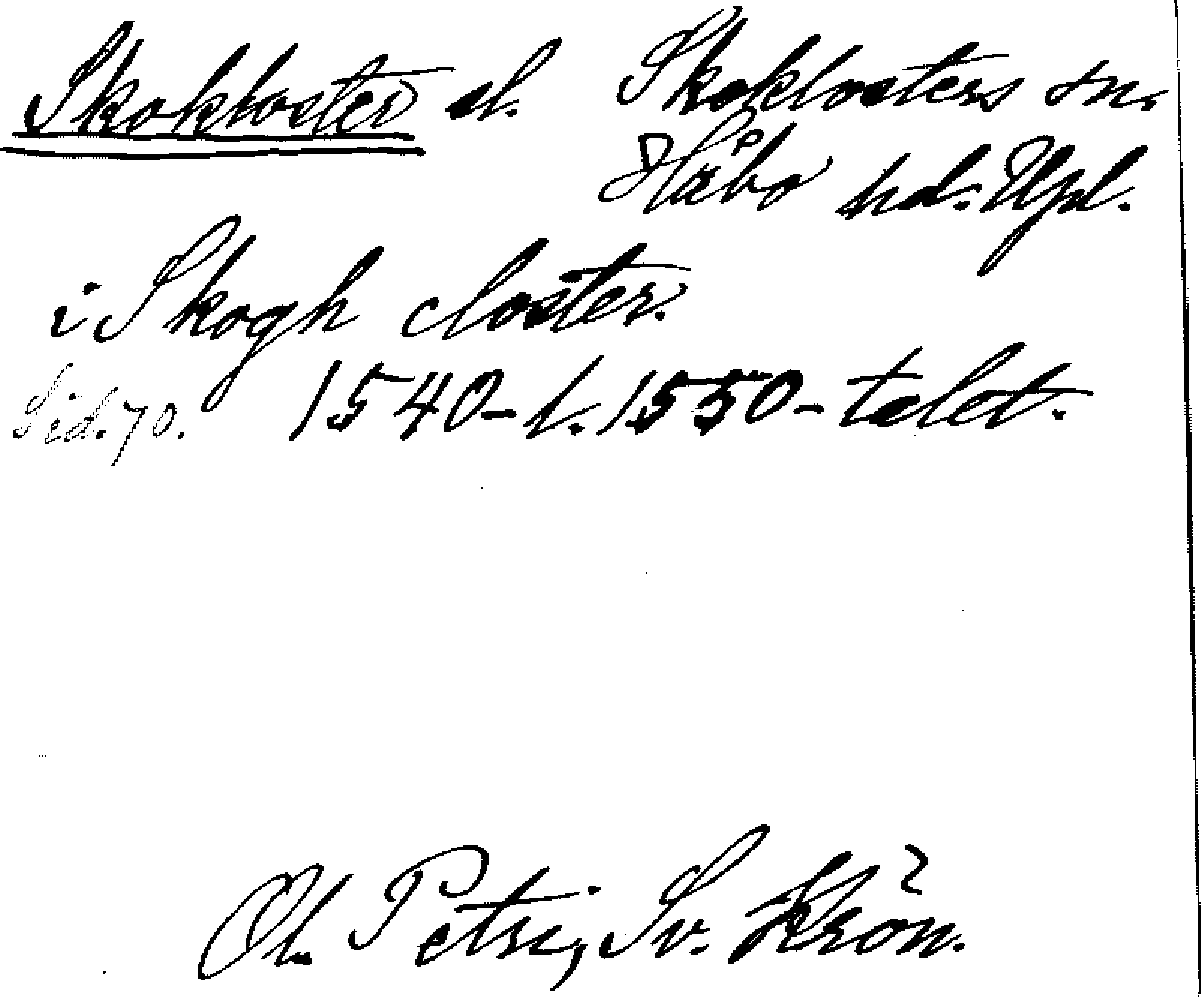 Skokloster sl. Skoklosters sn.
Håbo hd. Upl.
i Skogh closter.
Sid. 70. 1540- l. 1550- talet.
Ol. Petri, Sv. Krön.